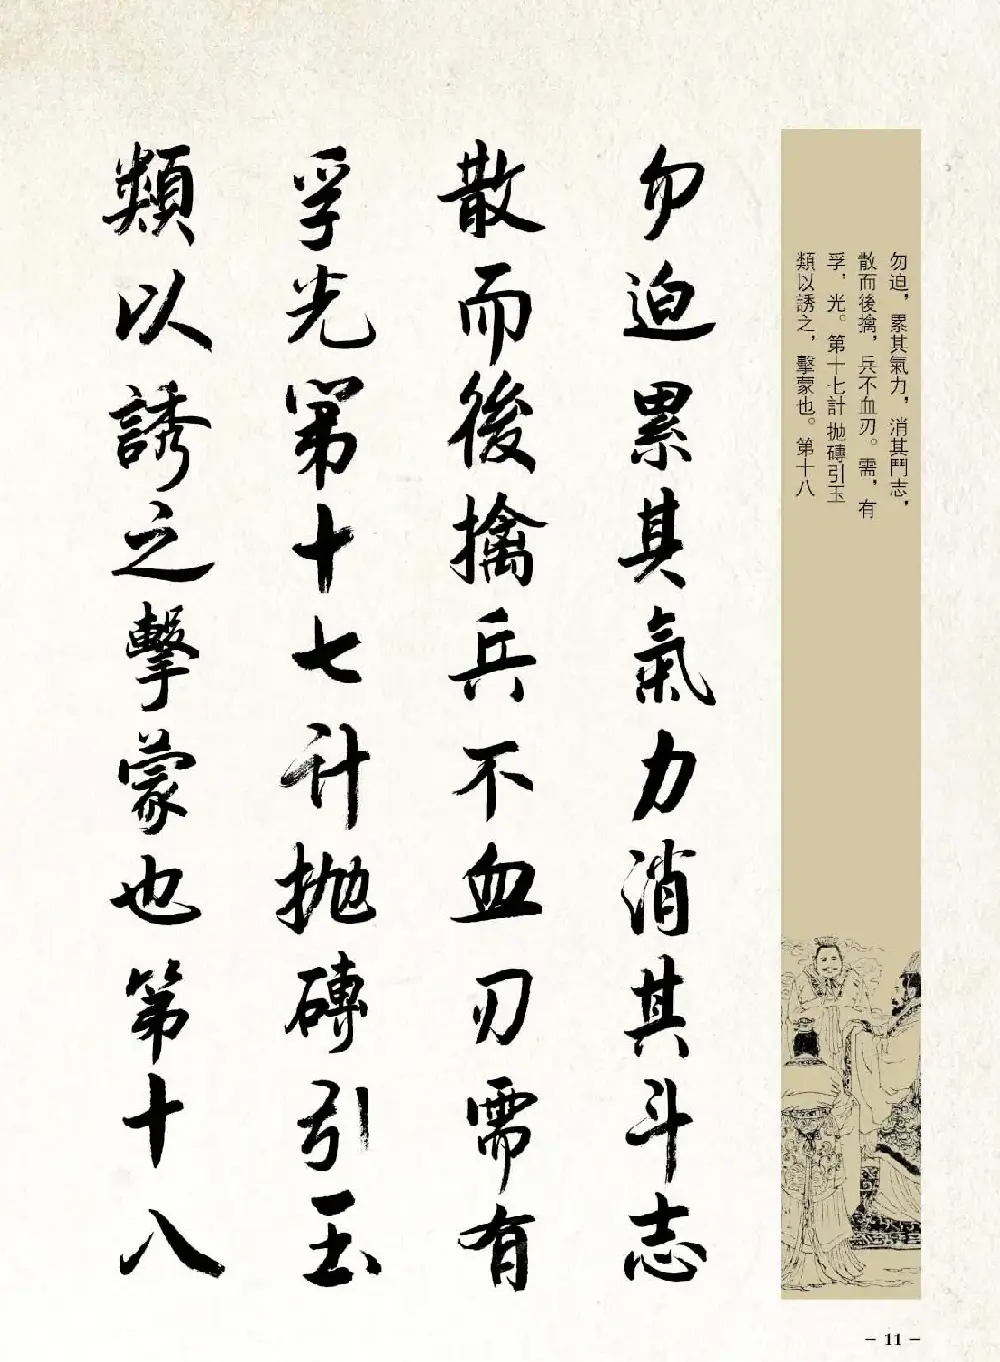 勿迫，累其氣力，消其鬥志，
散而後擒，兵不血刃。需，有
孚，光。第十七計 抛磚引玉
類以誘之，擊蒙也。第十八
勿迫累其氣力消其斗志
散而後擒兵不血刃需有
孚光第十七计抛磚引玉
類以誘之擊蒙也第十八
- 11 -